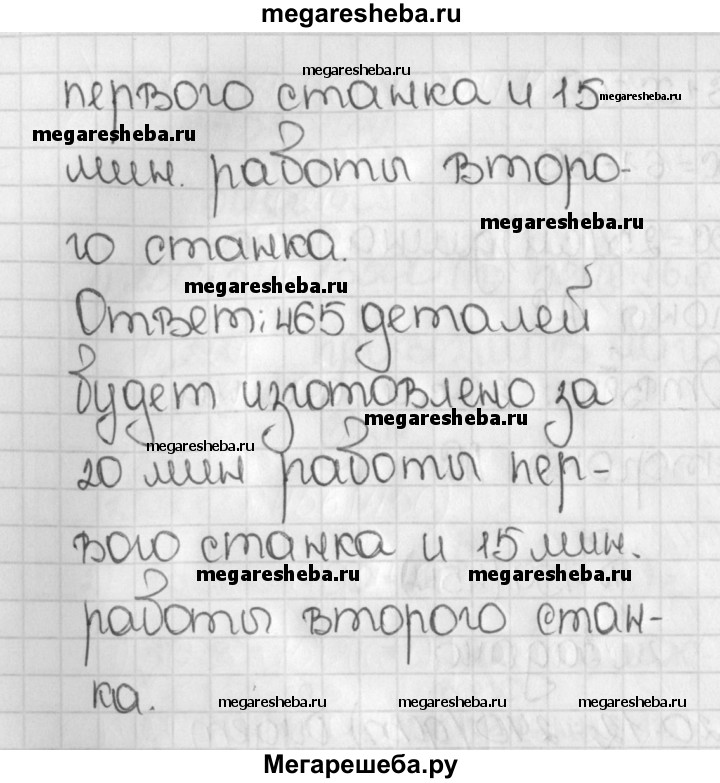 megaresheba.ru
megaresheba.ru
первого станка и 15 megaresheba.ru
megaresheba.ru
мин. работы второ-
megaresheba.ru
го станка.
megaresheba.ru
Ответ: 465 деталей
будет изготовлено за
megaresheba.ru
megaresheba.ru
20 мин работы пер-
вого станка и 15 мин.
megaresheba.ru megaresheba.ru
работы второго стан-
ка. megaresheba.ru megaresheba.ru megaresheba.ru
Мегарешеба.ру